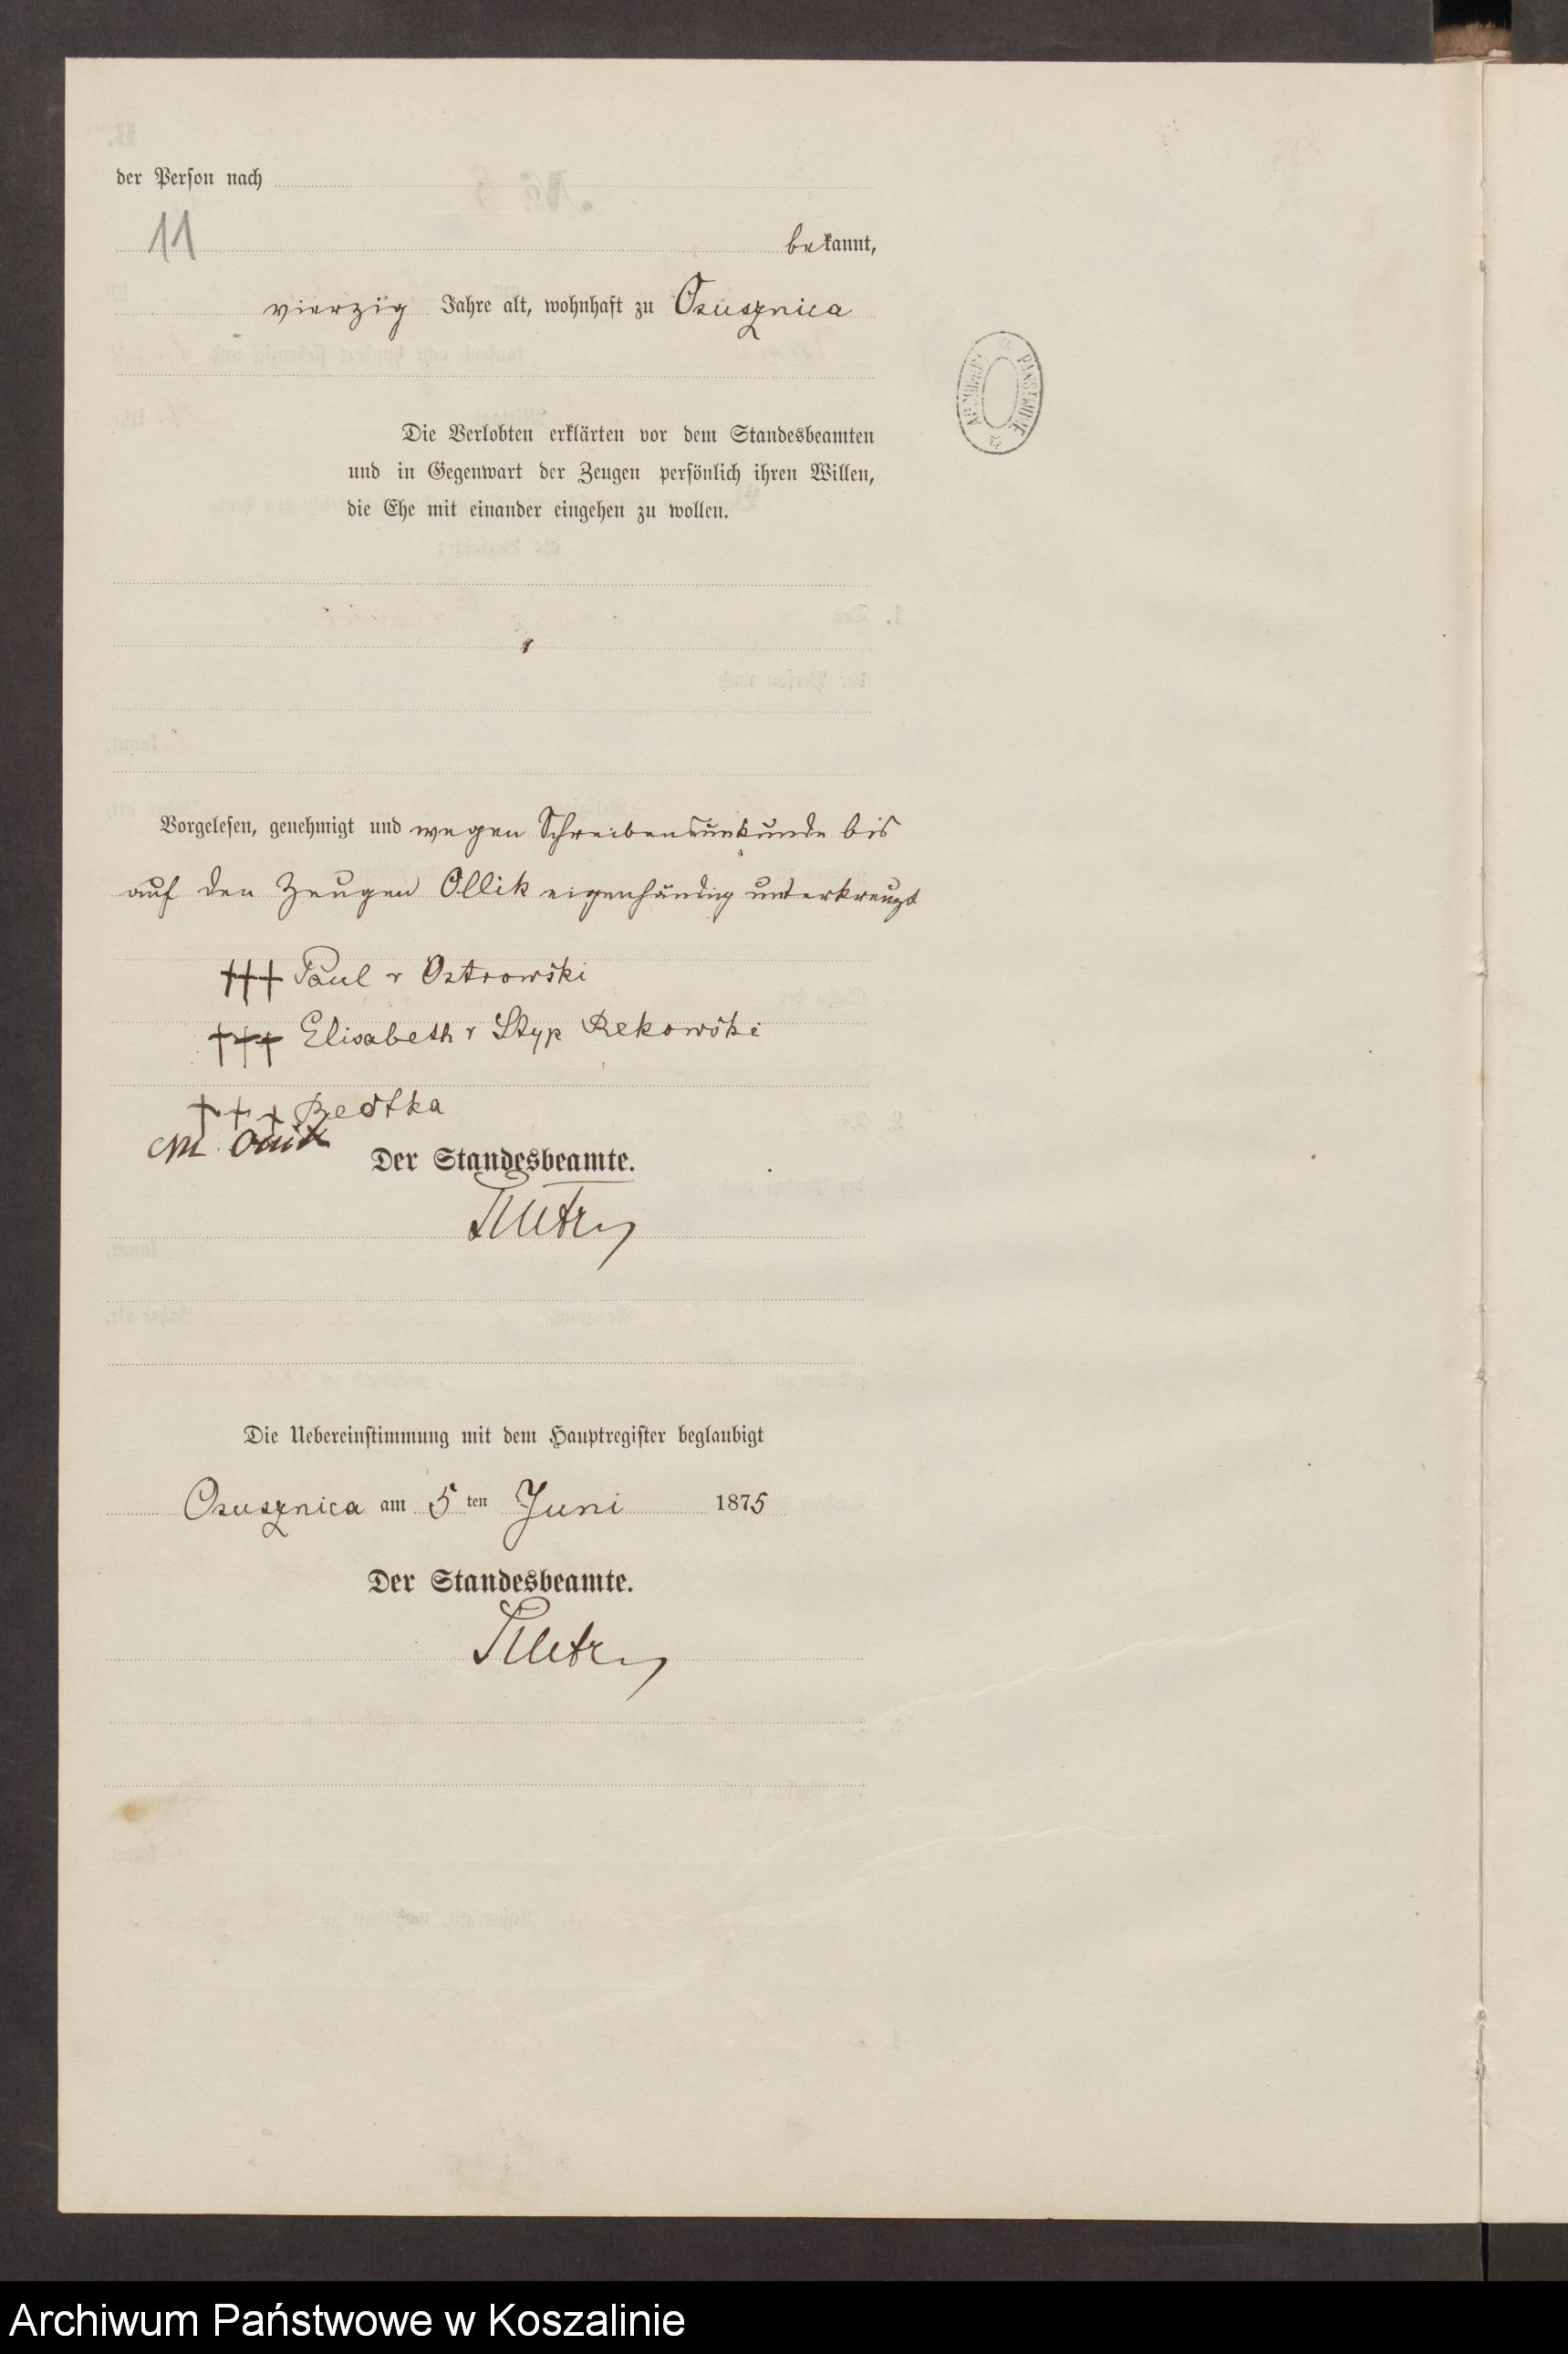 der Person nach
11
bekannt,
vierzig Jahre alt, wohnhaft zu Osusznica
Die Verlobten erklärten vor dem Standesbeamten
und in Gegenwart der Zeugen persönlich ihren Willen,
die Ehe mit einander eingehen zu wollen.
Vorgelesen, genehmigt und wegen Schreibensunkunde bis
auf den Zeugen Ollik eigenhändig unterkreuzt
+++ Paul v Ostrowski
+++ Elisabeth v Styp Rekowski
+++
M. Ollik
Der Standesbeamte.
Die Uebereinstimmung mit dem Hauptregister beglaubigt
Osusznica am 5 ten Juni 1875
Der Standesbeamte.
ARCHIWUM PAŃSTWOWE
Archiwum Państwowe w Koszalinie